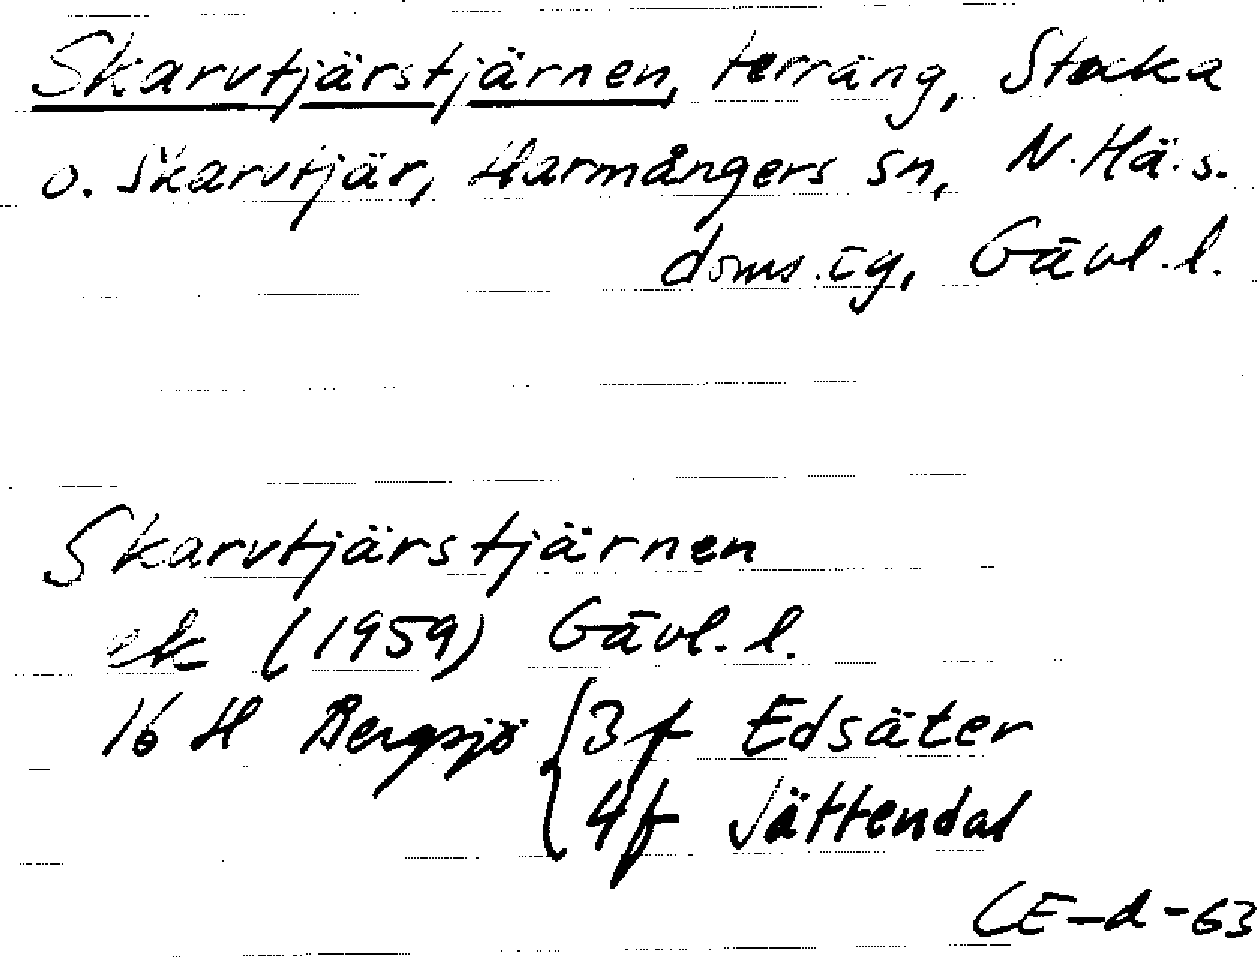 Skarvtjärstjärnen, terräng, Stocka
o. Skarvtjär, Harmångers sn, N. Hä.s.
doms.ag, Gävl. l.
Skarvtjärstjärnen
ek (1959) Gävl. l.
16 H Bergsjö { 3f Edsäter
4f Jättendal
CE-d-63